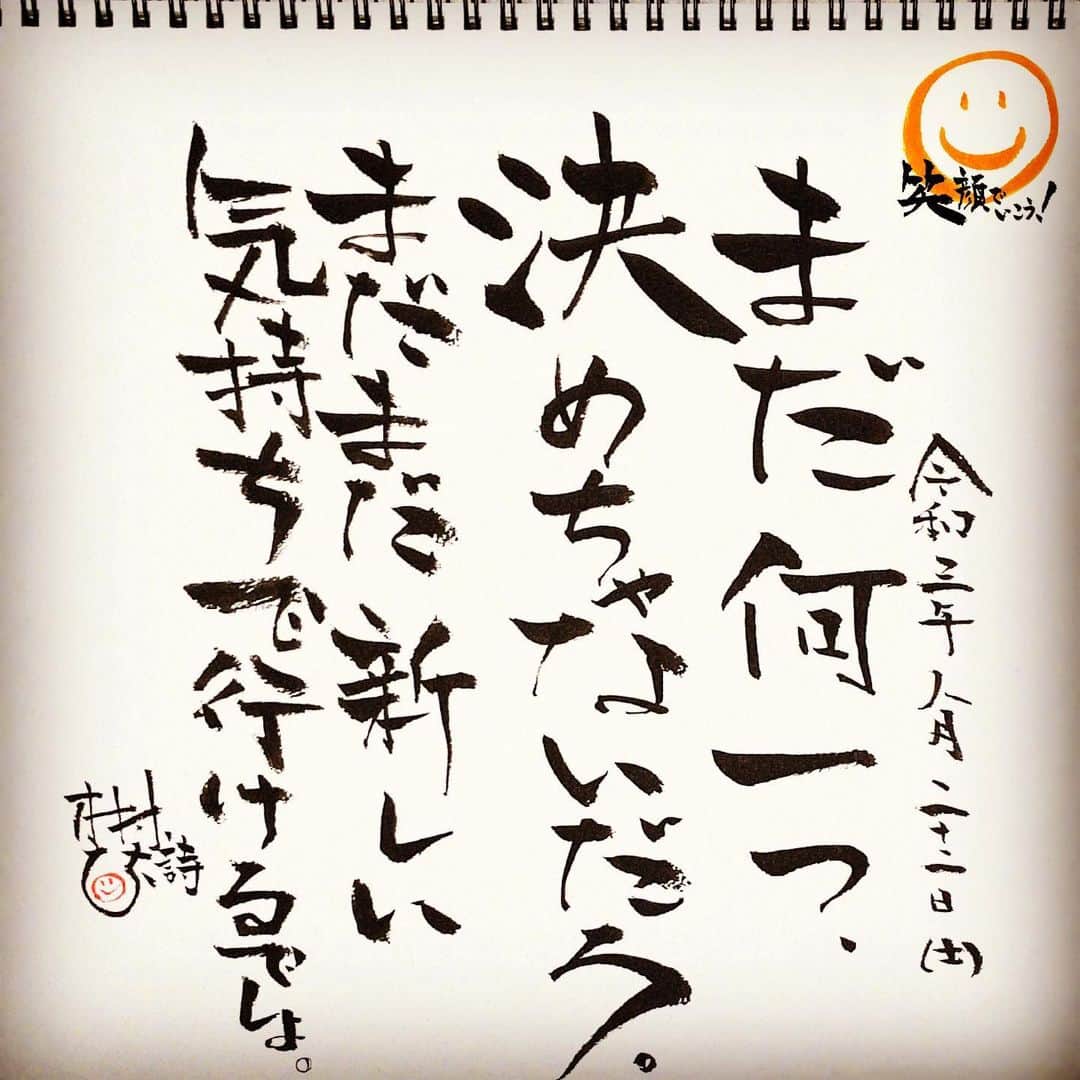 笑顔でいこう!
令和三年八月二十二日(土)
まだ何一つ、
決めちゃないだろ。
まだまだ新しい
気持ちで行けるでしょ。